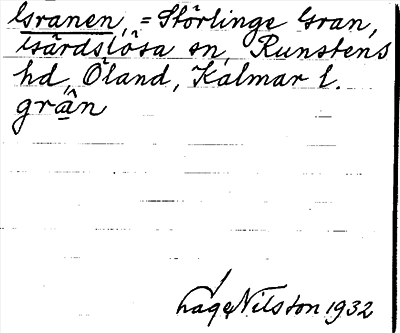 Granen, = Störlinge Gran,
Gärdslösa sn, Runstens
hd, Öland, Kalmar l.
grän
Lage Nilsson 1932